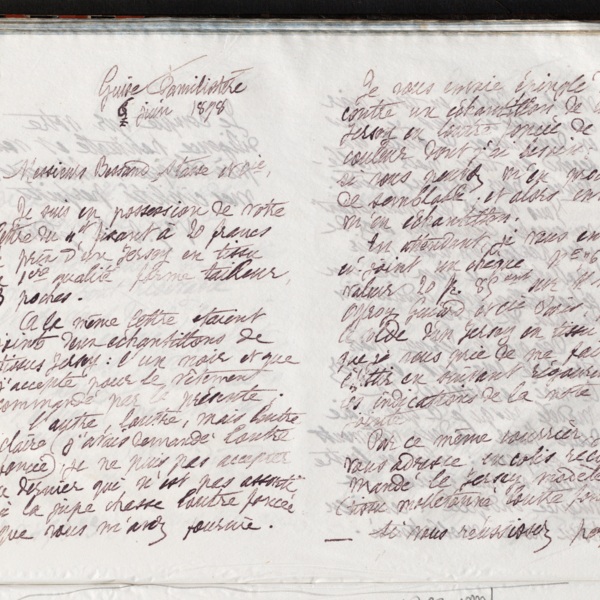 Guise Familistère
6 juin 1878
Messieurs Bessand, Stasse et Cie,
Je suis en possession de votre
lettre du 4 et fixant à 20 francs
le prix d'un Jersey en tissu
1ère qualité, forme tailleur,
3 poches.
A la même lettre étaient
joints deux échantillons de
tissus Jersey : l'un noir et que
j'accepte pour le vêtement
commandé par la présente.
l'autre, loutre, mais loutre
claire (j'avais demandé loutre
foncée), je ne puis pas accepter
ce dernier qui n'est pas assorti
à la jupe chasse loutre foncée
que vous m'avez fournie.
Je vous envoie épinglé
contre un échantillon de
Jersey en loutre foncée de
couleur dont je désire
si vous pouvez m'en
de semblable, et alors
m'en échantillon.
En attendant, je vous
ci-joint un chèque
valeur 20 f. 85 sur
Cie
le prix d'un Jersey en tissu
que je vous prie de me faire
en suivant
les indications de la note
jointe.
Par ce même courrier
vous adresse en colis
mandé le Jersey modèle
tissu molletonné loutre
— Si vous réussissez